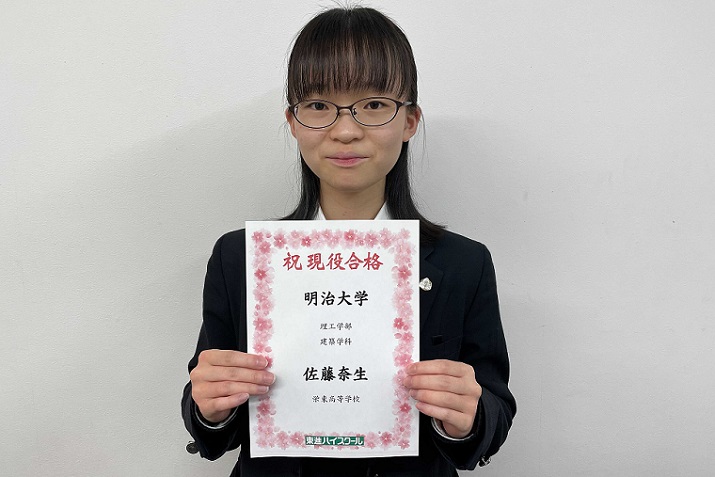 祝 現役合格
明治大学
理工学部
建築学科
佐藤奈生
栄東高等学校
東進ハイスクール